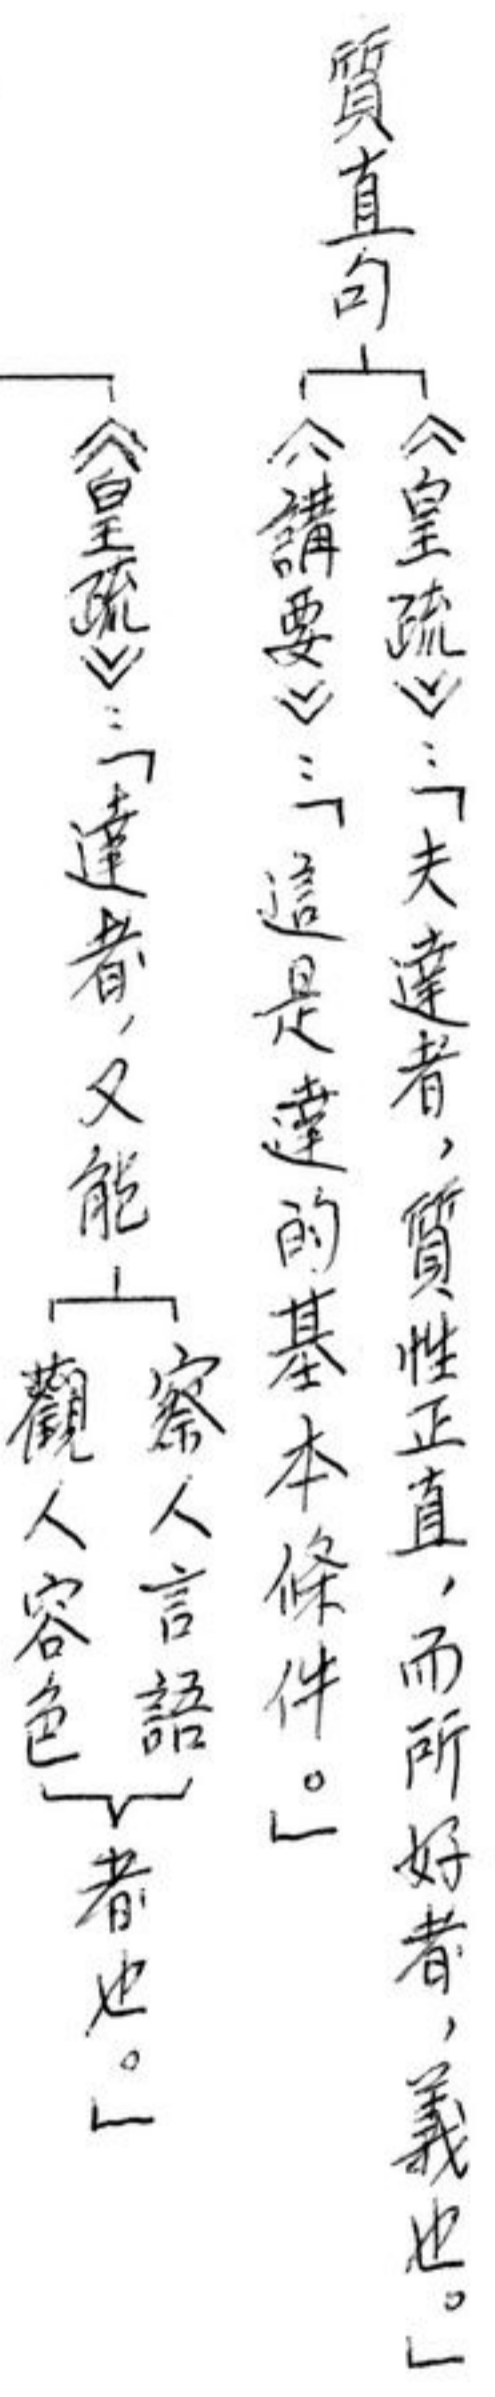 質直句
《皇疏》：「夫達者，質性正直，而所好者，義也。」
《講要》：「這是達的基本條件。」
《皇疏》：「達者，又能
察人言語
觀人容色
者也。」